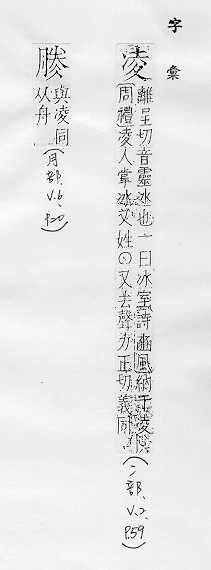 字彙
凌
離呈切音靈冰也一曰冰室詩豳風納于凌陰
周禮凌人掌冰又姓○又去聲力正切義同
(冫部、V.2、P.59)
與凌同
从舟
(月部、V.6、P.20)